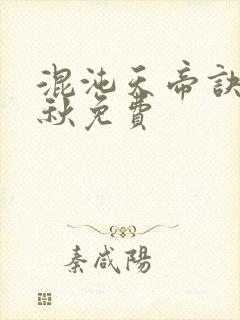 混沌天帝訣
秋免費
秦咸陽